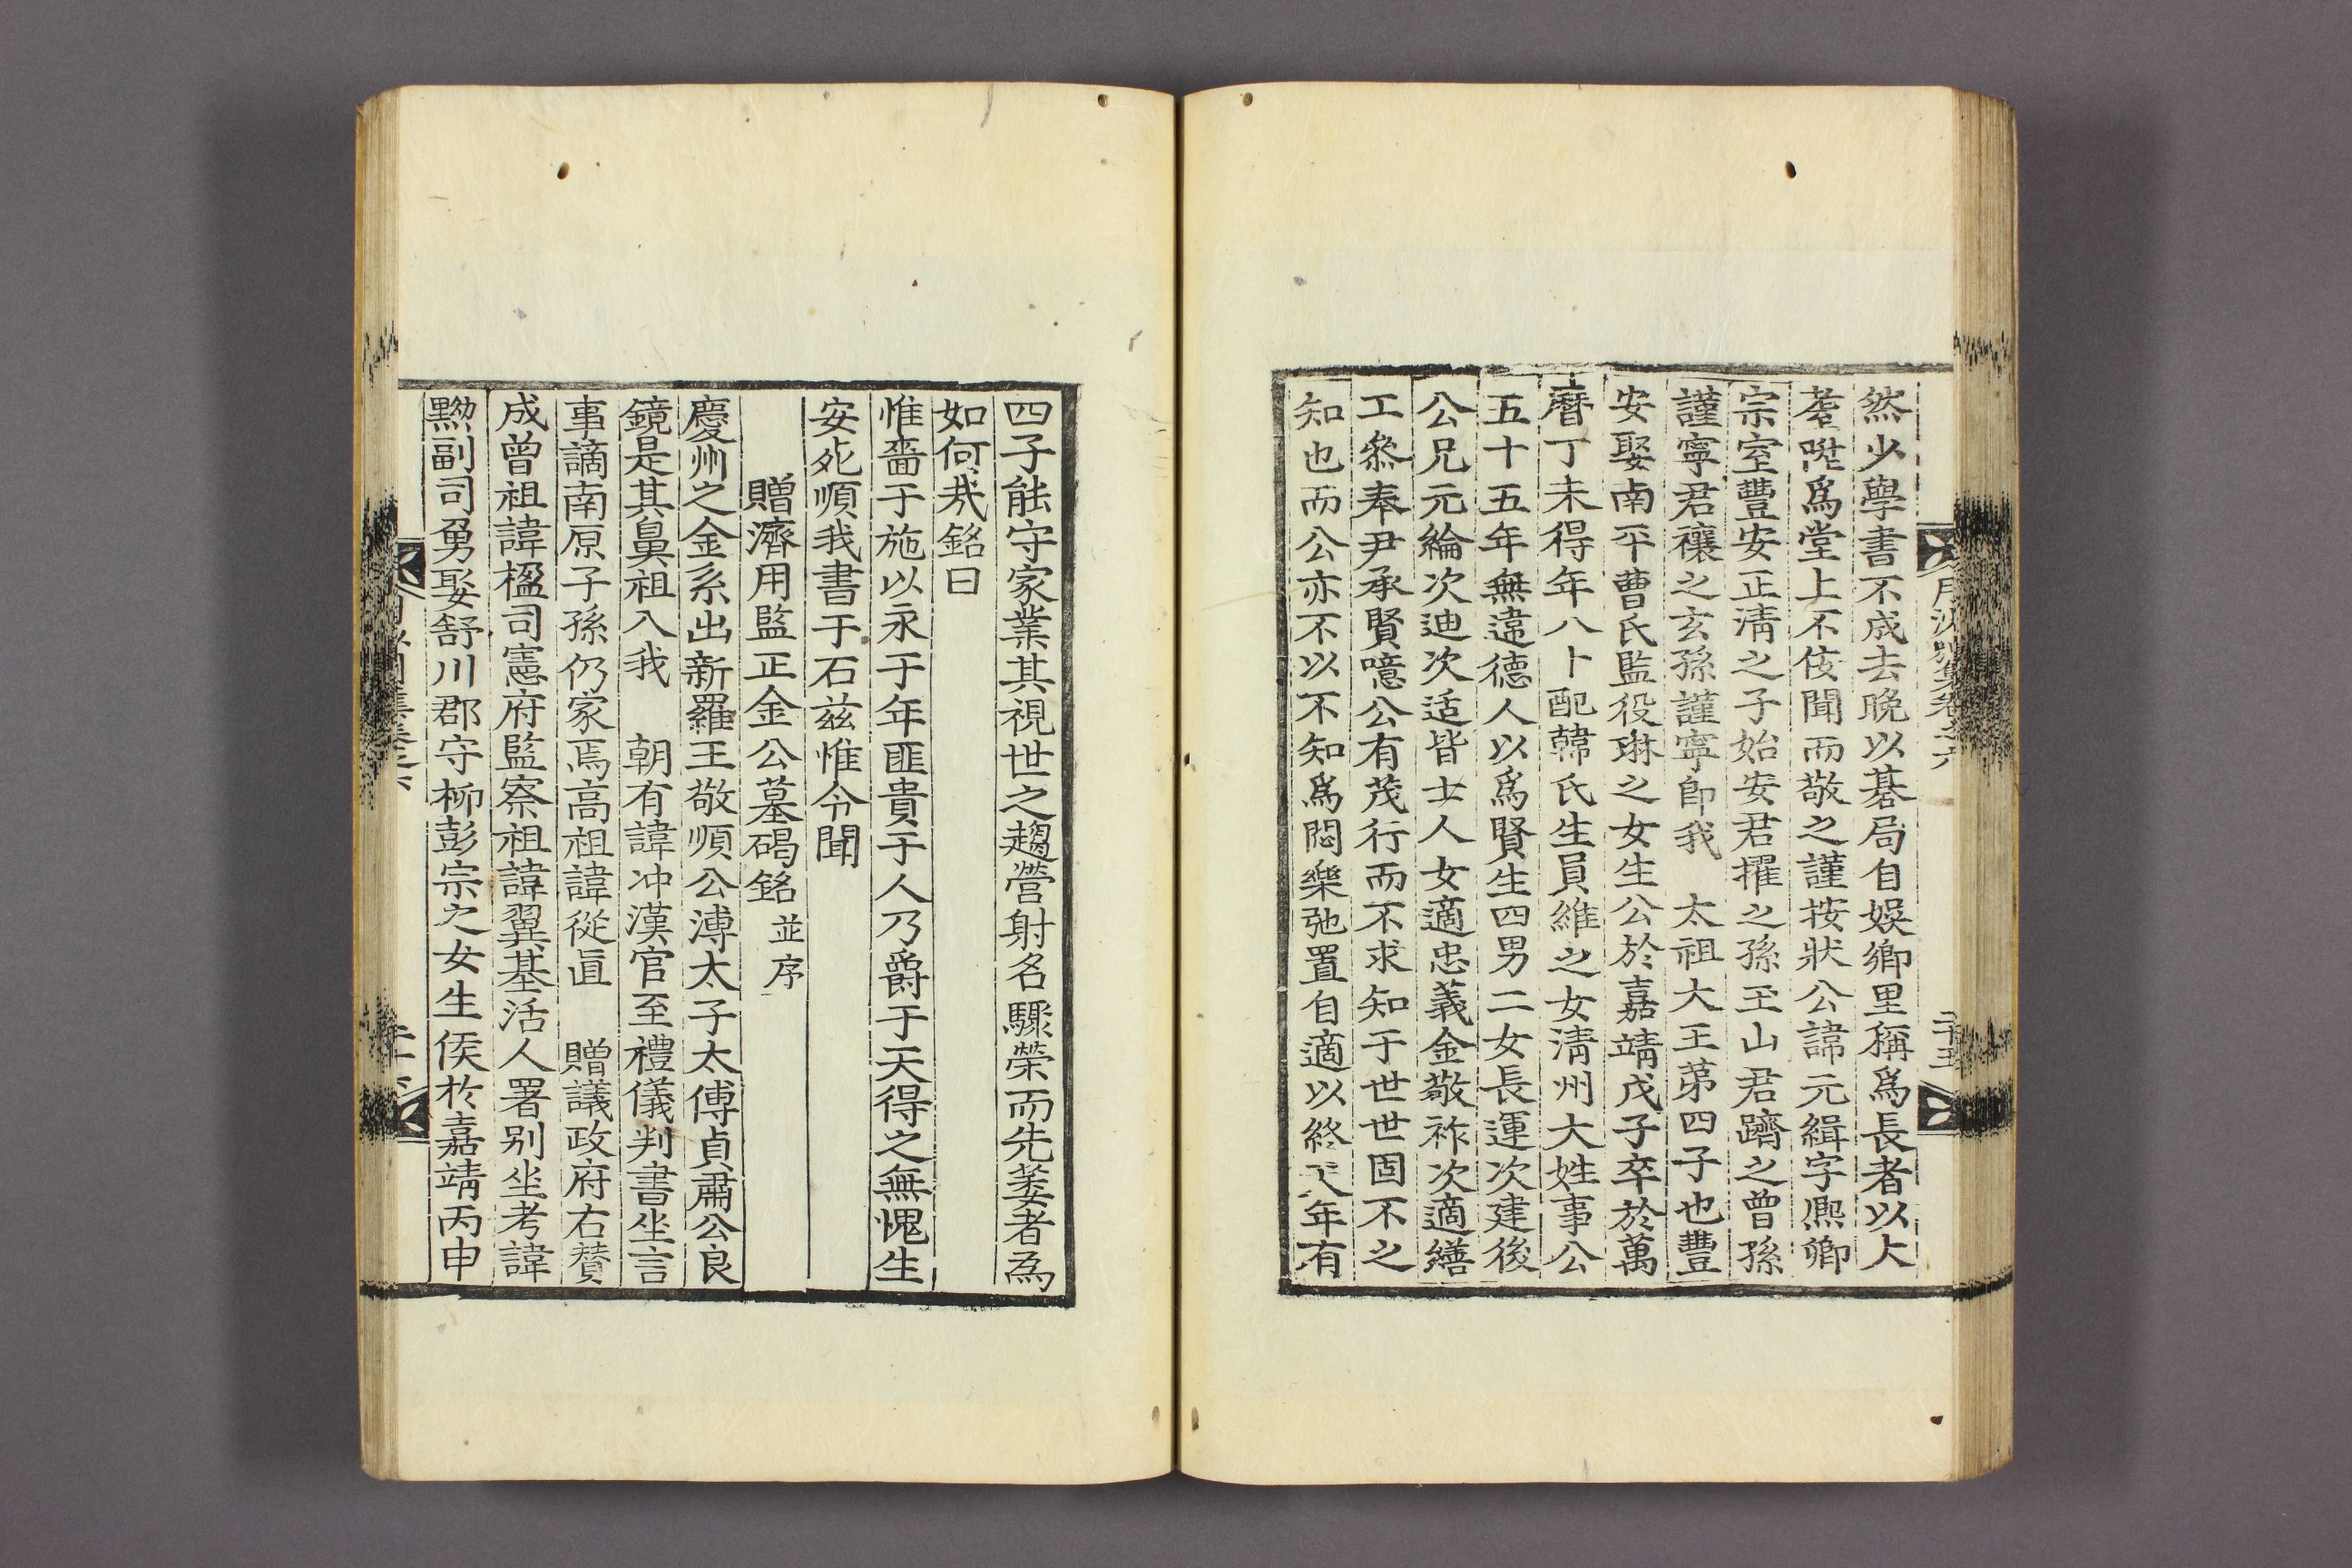 然少學書不成去晩以碁局自娛鄕里稱爲長者以大
耋陞爲堂上不侫聞而敬之謹按狀公諱元緝字凞卿
宗室豐安正淸之子始安君擢之孫玉山君躋之曾孫
謹寧君禯之玄孫謹寧卽我 太祖大王第四子也豐
安娶南平曹氏監役琳之女生公於嘉靖戊子卒於萬
曆丁未得年八卜配韓氏生員維之女淸州大姓事公
五十五年無違德人以爲賢生四男二女長運次建後
公兄元綸次迪次适皆士人女適忠義金敬祚次適繕
工叅奉尹承賢噫公有茂行而不求知于世世固不之
知也而公亦不以不知爲悶樂弛置自適以終天年有
四子能守家業其視世之趨營射名驟榮而先萎者爲
如何㢤銘曰
惟嗇于施以永于年匪貴于人乃爵于天得之無愧生
安死順我書于石玆惟令聞
贈濟用監正金公墓碣銘 並序
慶州之金系出新羅王敬順公溥太子太傅貞肅公良
鏡是其鼻祖入我 朝有諱冲漢官至禮儀判書坐言
事謫南原子孫仍家焉高祖諱從直 贈議政府右贊
成曾祖諱楹司憲府監察祖諱翼基活人署别坐考諱
黝副司勇娶舒川郡守柳彭宗之女生侯於嘉靖丙申